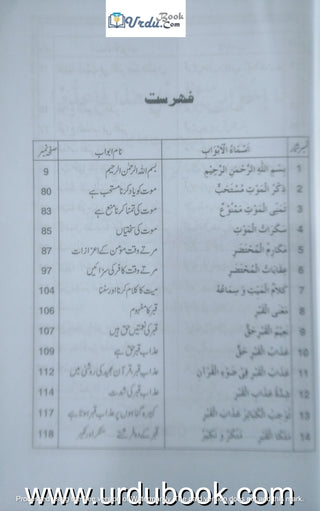 Urdu Book.Com
فہرست
نمبر شمار اَسْمَاءُ الْاَبْوَاب نام ابواب صفحہ نمبر
1 بِسْمِ اللّٰهِ الرَّحْمٰنِ الرَّحِيْمِ بسم اللہ الرحمٰن الرحیم 9
2 ذِكْرُ الْمَوْتِ مُسْتَحَبٌّ موت کو یاد کرنا مستحب ہے 80
3 تَمَنِّى الْمَوْتِ مَمْنُوْعٌ موت کی تمنا کرنا منع ہے 83
4 سَكَرَاتُ الْمَوْتِ موت کی سختیاں 85
5 مَكَارِمُ الْمُحْتَضَرِ مرتے وقت مؤمن کے اعزازات 87
6 عِقَابَاتُ الْمُحْتَضَرِ مرتے وقت کافر کی سزائیں 97
7 كَلَامُ الْمَيِّتِ وَ سِمَاعُهُ میت کا کلام کرنا اور سننا 104
8 مَعْنَى الْقَبْرِ قبر کا مفہوم 106
9 نَعِيْمُ الْقَبْرِ حَقٌّ قبر کی نعمتیں حق ہیں 107
10 عَذَابُ الْقَبْرِ حَقٌّ عذاب قبر حق ہے 109
11 عَذَابُ الْقَبْرِ فِىْ ضَوْءِ الْقُرْآنِ عذاب قبر، قرآن مجید کی روشنی میں 112
12 شِدَّةُ عَذَابِ الْقَبْرِ عذاب قبر کی شدت 114
13 الْكَبَائِرِ عَذَابَ الْقَبْرِ کبیرہ گناہوں پر عذاب قبر ہوتا ہے 117
14 مَلَكَا الْقَبْرِ مُنْكَرٌ وَ نَكِيْرٌ قبر کے دو فرشتے منکر اور نکیر 118
www.urdubook.com